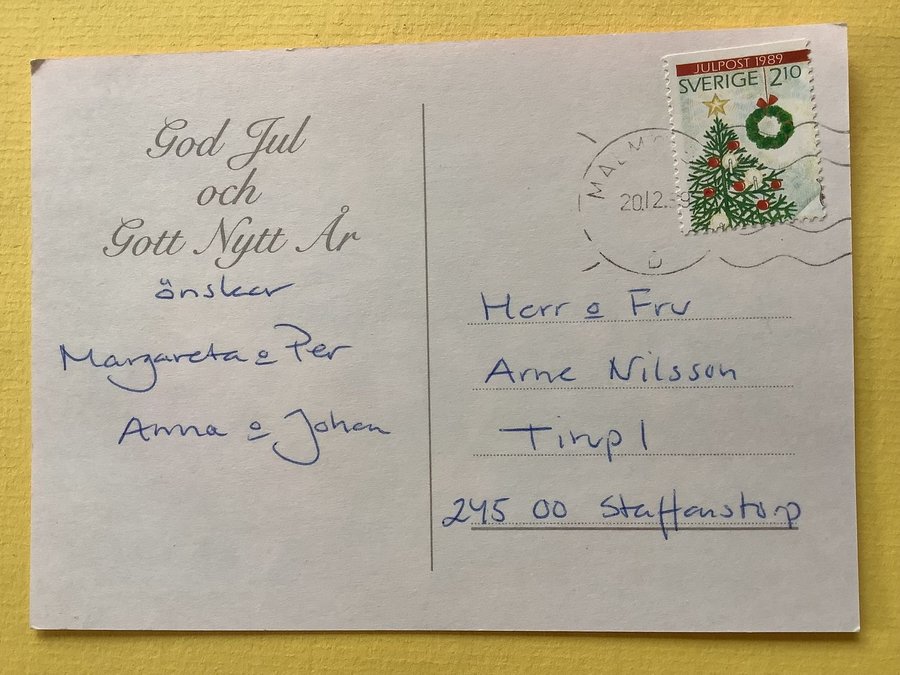 God Jul
och
Gott Nytt År
önskar
Margareta o Per
Anna o Johan
JULPOST 1989
SVERIGE 2 10
20.12.
Herr o Fru
Arne Nilsson
245 00 Staffanstorp